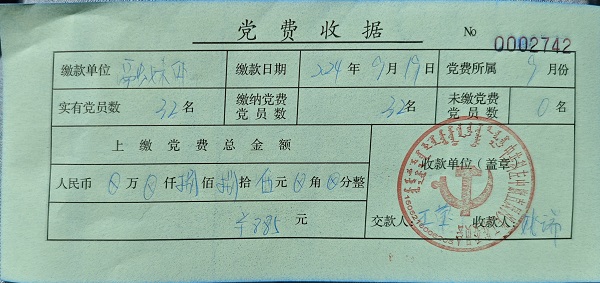 党费收据
No 0002742
缴款单位 缴款日期 2024年9月19日 党费所属 9月份
实有党员数 32名 缴纳党费党员数 32名 未缴党费党员数 0名
上缴党费总金额
人民币 0万0仟捌佰捌拾伍元0角0分整
¥885元
收款单位(盖章)
交款人: 收款人: